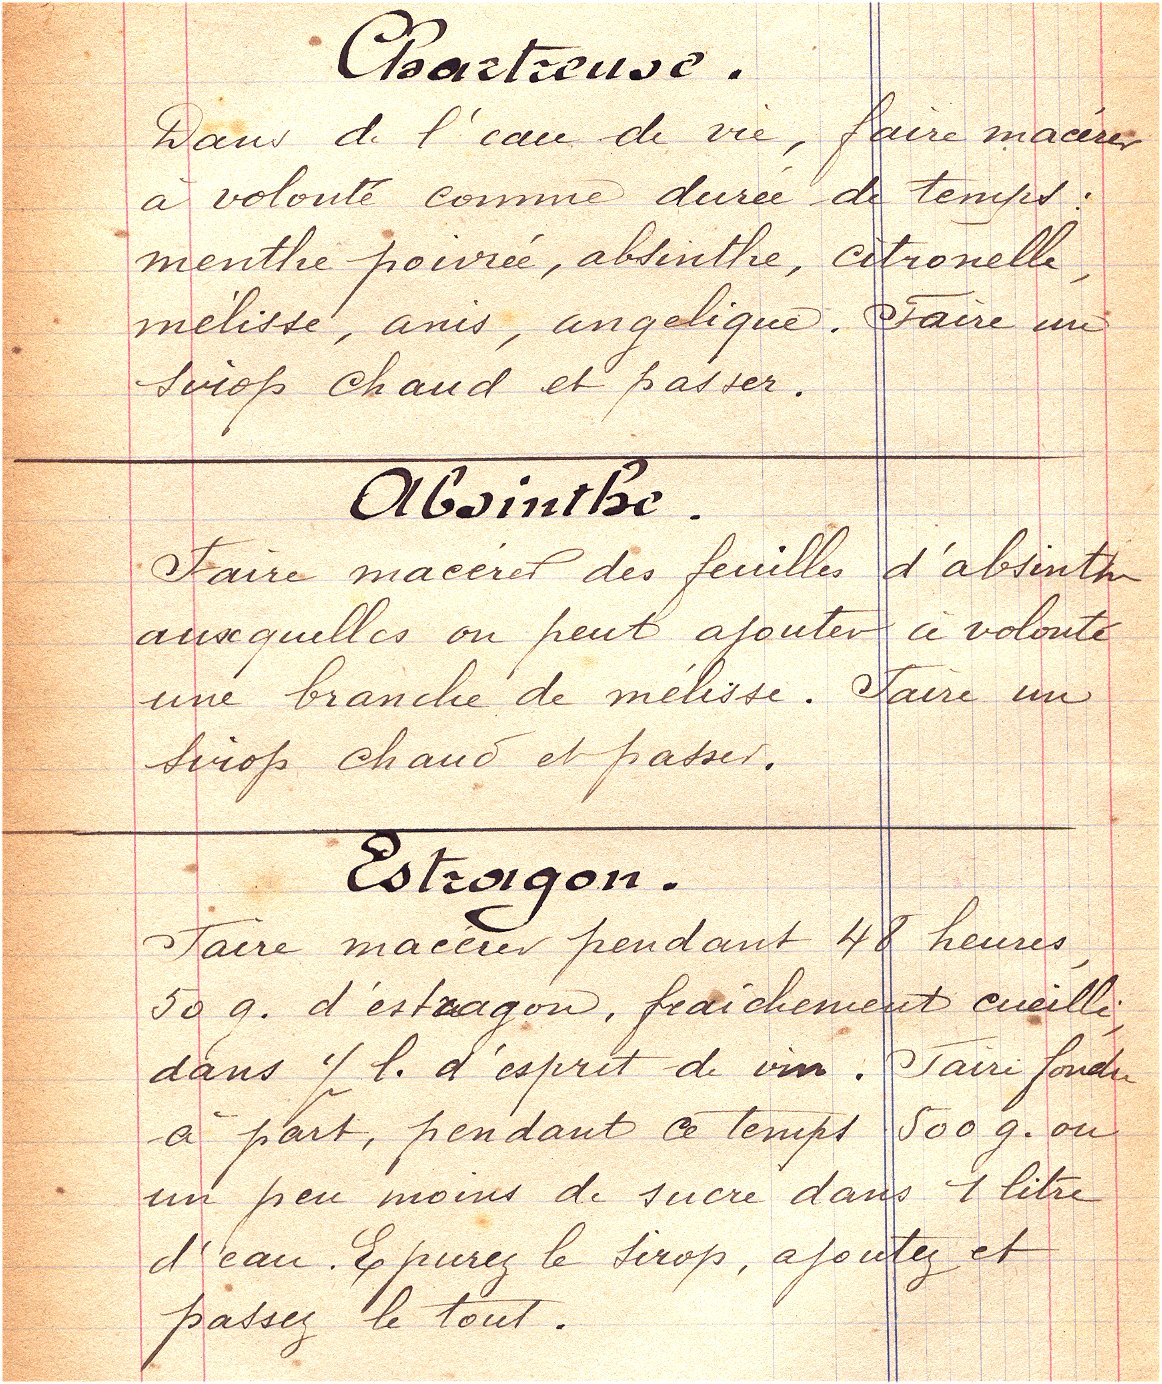 Chartreuse.
Dans de l'eau de vie, faire macérer
à volonté comme durée de temps :
menthe poivrée, absinthe, citronelle,
mélisse, anis, angelique. Faire un
sirop chaud et passer.
Absinthe.
Faire macérer des feuilles d'absinthe
auxquelles on peut ajouter à volonté
une branche de mélisse. Faire un
sirop chaud et passer.
Estragon.
Faire macérer pendant 48 heures,
50 g. d'estragon, fraichement cueilli,
dans l. d'esprit de vin. Faire fondre
à part, pendant ce temps 500 g. ou
un peu moins de sucre dans 1 litre
d'eau. Epurez le sirop, ajoutez et
passez le tout.